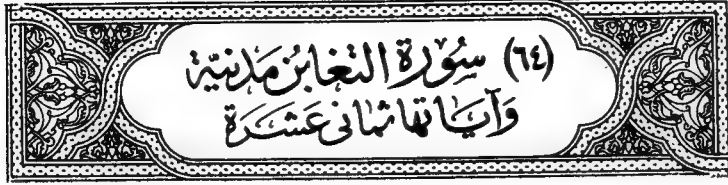 (٦٤) سُوْرَة التغابُن مَدنيَّة
وَآيَاتها ثمانى عَشَرَة